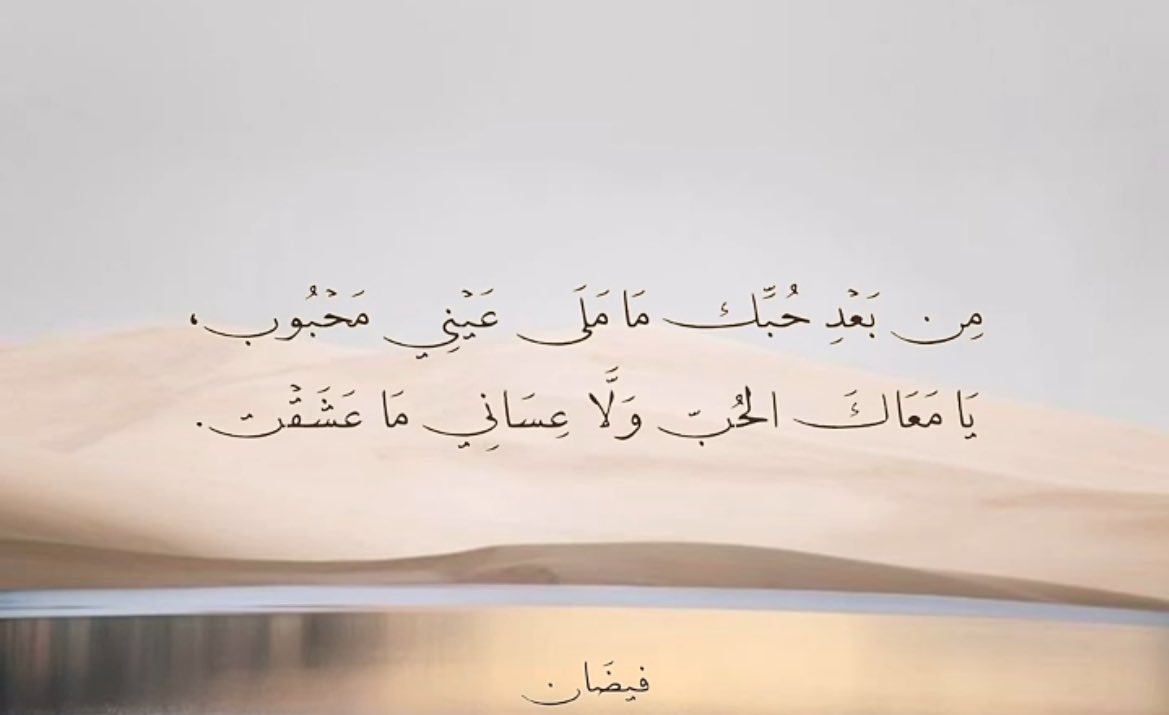 مِن بَعْدِ حُبَّك مَا مَلَى عَيْنِي مَحْبُوب،
يَا مَعَاكَ الحُبّ وَلَّا عِسَانِي مَا عَشَقْت.
فيضَان